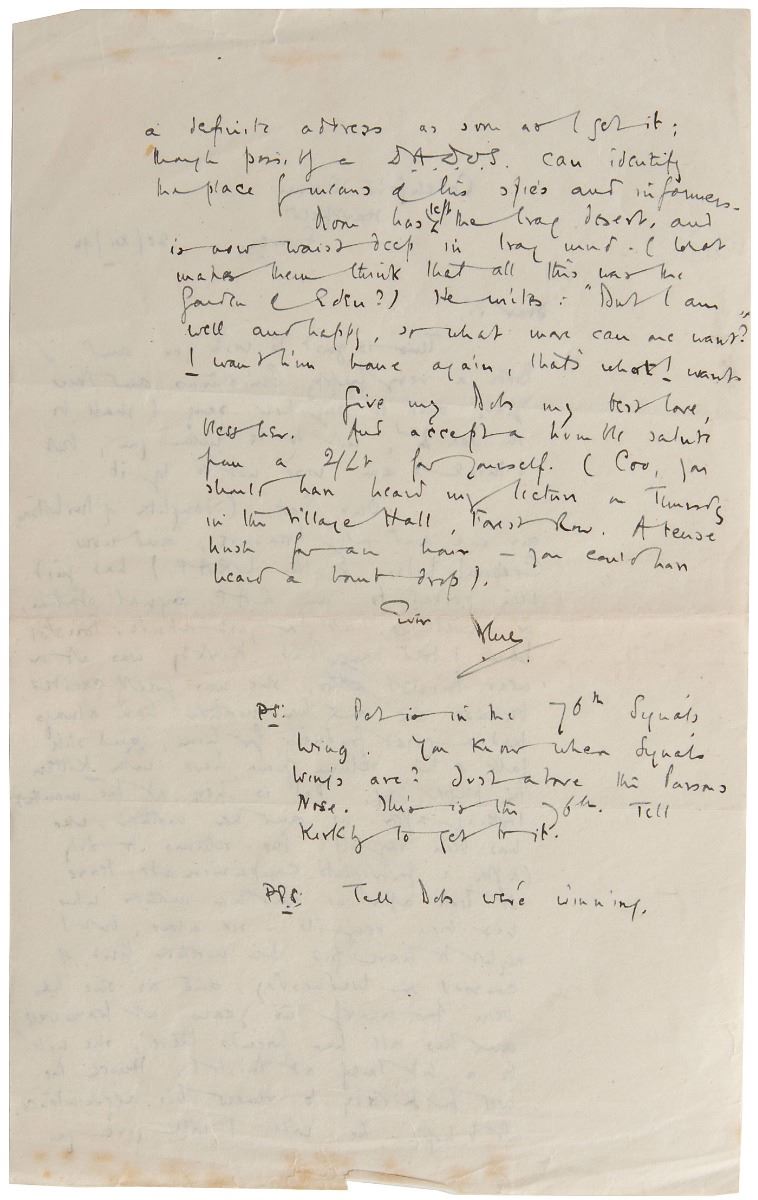 a definite address as soon as I get it;
though possibly a D.A.D.O.S. can identify
the place by means of his spies and informers.
has left the Iraq desert, and
is now waist deep in Iraq mud. (What
makes them think that all this was the
Garden of Eden?) He writes: "But I am
well and happy, so what more can one want?"
I want him home again, that's what I wants
Give my Dobs my best love,
bless her. And accept a humble salute
from a 2/Lt for yourself. (Coo, you
should have heard my lecture on Thursday
in the Village Hall, Forest Row. A tense
hush for an hour — you could have
heard a bomb drop).
Ever
Blue
PS. is in the 76th Signals
Wing. You know where Signals
Wings are? Just above the Parsons
Nose. This is the 76th. Tell
to get to it.
PPS. Tell Dobs we're winning.